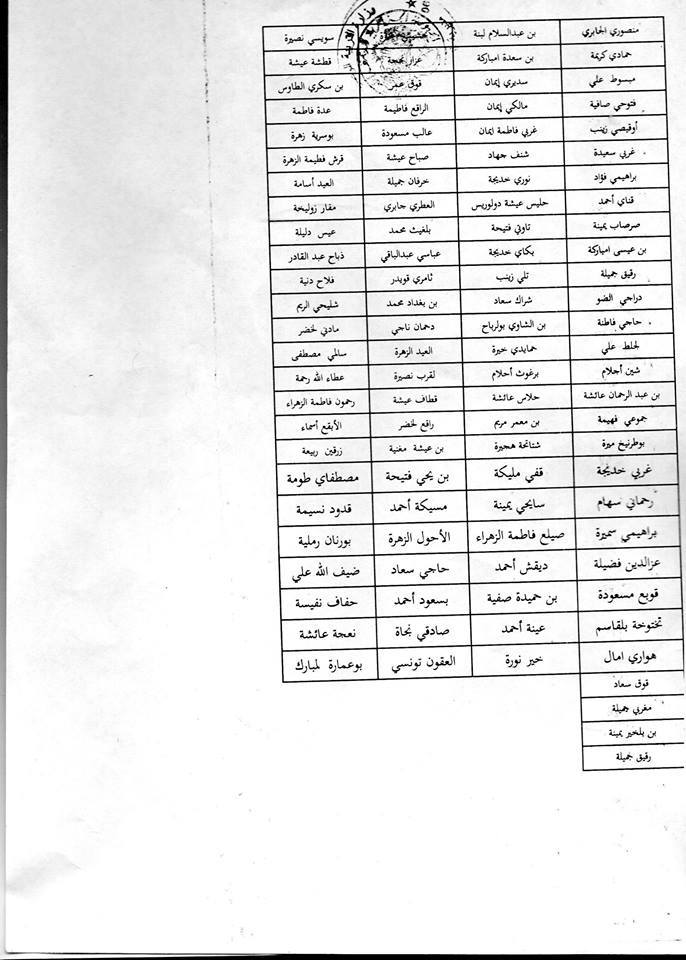 منصوري الجابري بن عبدالسلام لبنة سويسي نصيرة
حمادي كريمة بن سعدة امباركة عزار نجمة قطشة عيشة
مبسوط علي سديري إيمان قوق عمر بن سكري الطاوس
فتوحي صافية مالكي إيمان الراقع فاطيمة عدة فاطمة
أوقيصي زينب غربي فاطمة ايمان عالب مسعودة بوسرية زهرة
غربي سعيدة شنف جهاد صباح عيشة قرش فطيمة الزهرة
براهيمي فؤاد نوري خديجة خرفان جميلة العيد أسامة
قناي أحمد حليس عيشة دولوريس العطري جابري مقار زوليخة
صرصاب يمينة تاوتي فتيحة بلغيث محمد عيس دليلة
بن عيسى امباركة بكاي خديجة عباسي عبدالباقي ذباح عبد القادر
رقيق جميلة تلي زينب ثامري قويدر فلاح دنية
دراجي الضو شراك سعاد بن بغداد محمد شليحي الريم
حاجي فاطنة بن الشاوي بولرباح دحمان ناجي مادني لخضر
لجلط علي حمايدي خيرة العيد الزهرة سالمي مصطفى
شين أحلام برغوث أحلام لقرب نصيرة عطاء الله رحمة
بن عبد الرحمان عائشة حلاس عائشة قطاف عيشة رحمون فاطمة الزهراء
جموعي فهيمة بن معمر مريم رافع لخضر الأبقع أسماء
بوطرنيخ ميرة شتاتحة هجيرة بن عيشة مغنية زرقين ربيعة
غربي خديجة قفي مليكة بن يحي فتيحة مصطفاي طومة
رحماني سهام سايحي يمينة مسيكة أحمد قدود نسيمة
براهيمي سميرة صيلع فاطمة الزهراء الأحول الزهرة بورنان رملية
عزالدين فضيلة ديقش أحمد حاجي سعاد ضيف الله علي
قوبع مسعودة بن حميدة صفية بسعود أحمد حفاف نفيسة
تختوخة بلقاسم عينة أحمد صادقي نجاة نعجة عائشة
هواري امال خير نورة العقون تونسي بوعمارة لمبارك
قوق سعاد
مغربي جميلة
بن بلخير يمينة
رقيق جميلة